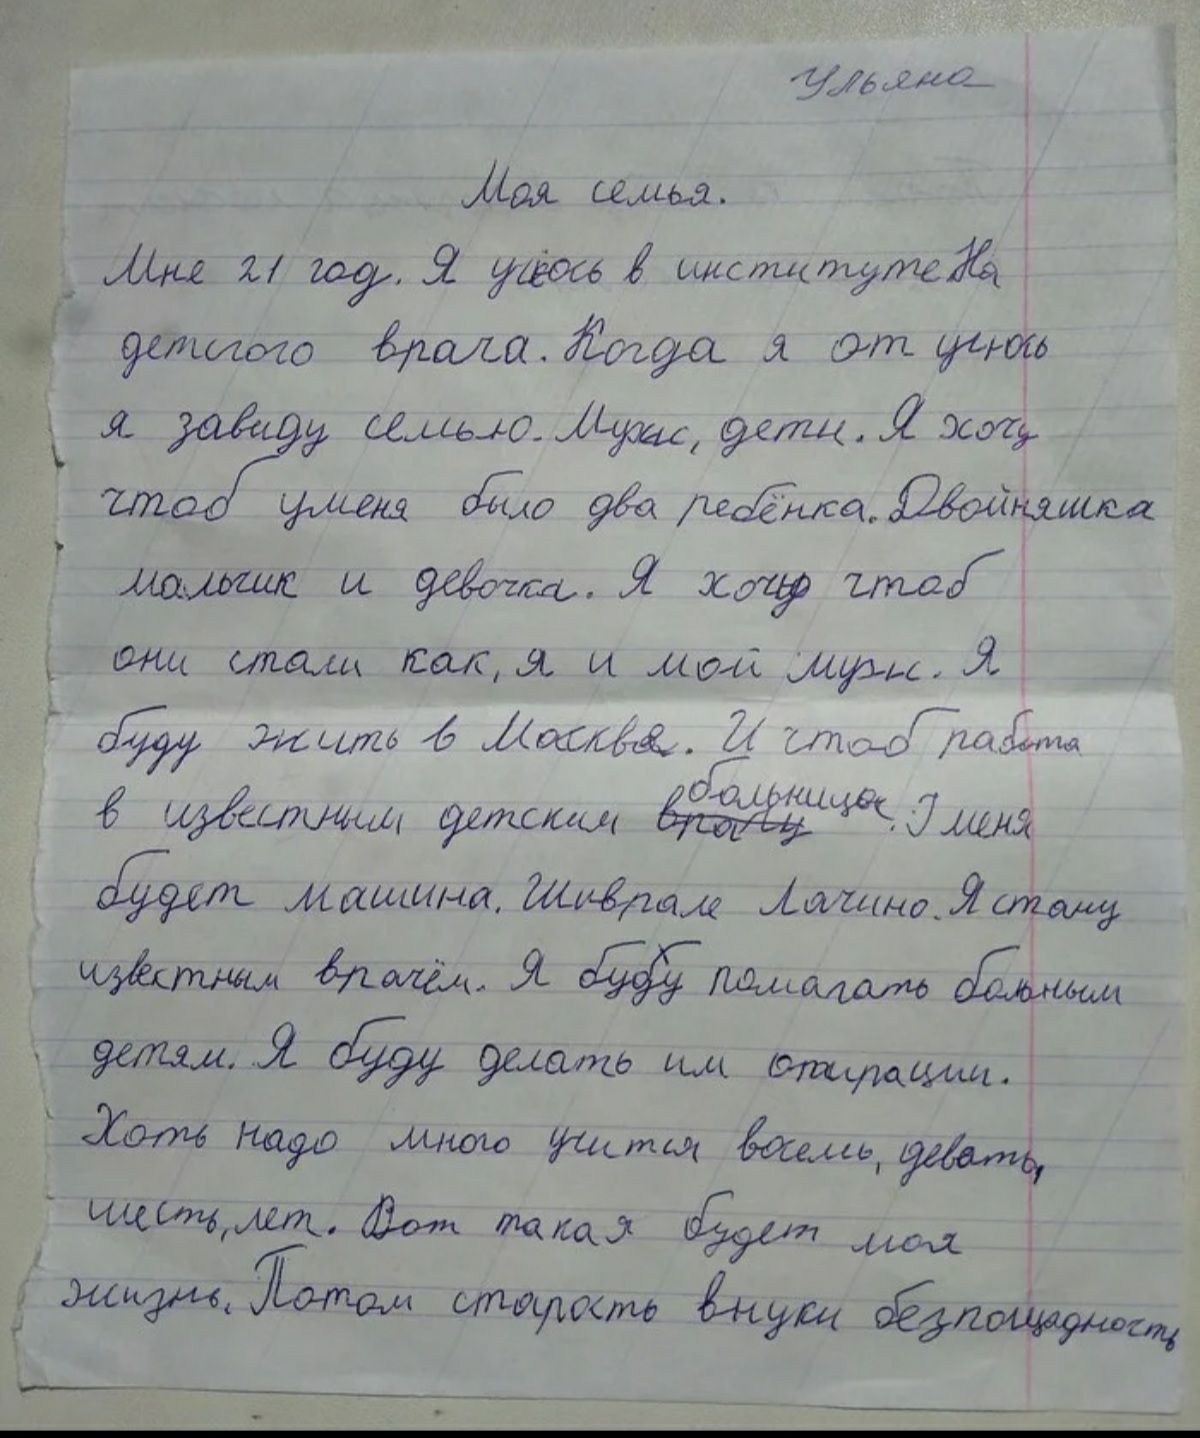 Ульяна
Моя семья.
Мне 21 год. Я учёюсь в институте На
детского врача. Когда я от учюсь
я завиду семью. Муж, дети. Я хочу
чтоб уменя было два ребёнка. Двойняшка
мальчик и девочка. Я хочу чтоб
они стали как, я и мой муж. Я
буду жить в Москве. И чтоб работа
в известным детским врачу больнице. У меня
будет машина. Шиврале Лачино. Я стану
известным врачём. Я буду помагать больным
детям. Я буду делать им опирации.
Хоть надо много учится восемь, девать,
шесть, лет. Вот такая будет моя
жизнь. Потом старость внуки безпощадность